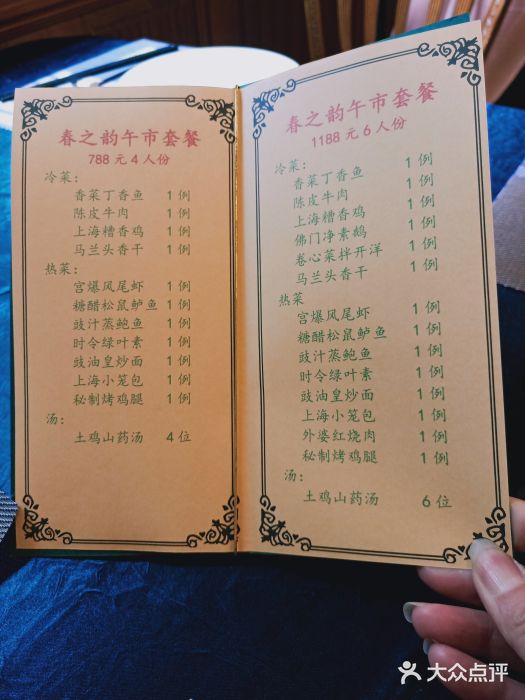 春之韵午市套餐
788 元 4 人份
冷菜：
香菜丁香鱼 1 例
陈皮牛肉 1 例
上海糟香鸡 1 例
马兰头香干 1 例
热菜：
宫爆凤尾虾 1 例
糖醋松鼠鲈鱼 1 例
豉汁蒸鲍鱼 1 例
时令绿叶素 1 例
豉油皇炒面 1 例
上海小笼包 1 例
秘制烤鸡腿 1 例
汤：
土鸡山药汤 4 位
春之韵午市套餐
1188 元 6 人份
冷菜：
香菜丁香鱼 1 例
陈皮牛肉 1 例
上海糟香鸡 1 例
佛门净素鹅 1 例
卷心菜拌开洋 1 例
马兰头香干 1 例
热菜
宫爆凤尾虾 1 例
糖醋松鼠鲈鱼 1 例
豉汁蒸鲍鱼 1 例
时令绿叶素 1 例
豉油皇炒面 1 例
上海小笼包 1 例
外婆红烧肉 1 例
秘制烤鸡腿 1 例
汤：
土鸡山药汤 6 位
大众点评